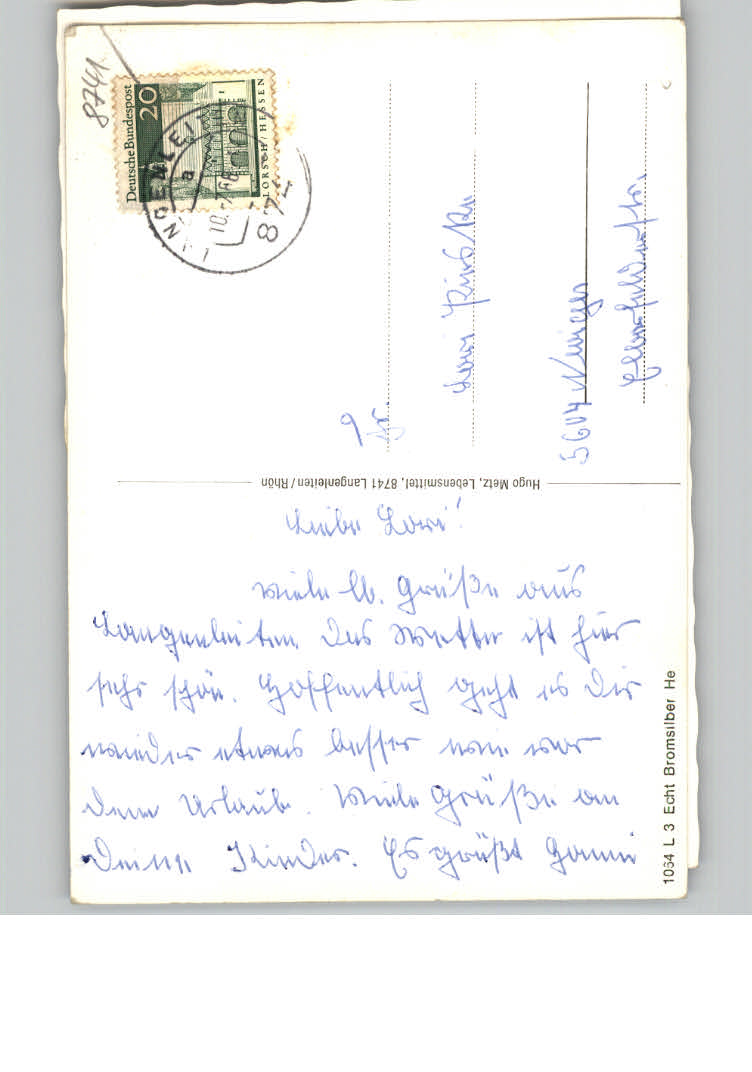 8741
Deutsche Bundespost
20
LORSCH / HESSEN
LANGENLEI
a
874
Lowi
5604 Neviges
Hugo Metz, Lebensmittel, 8741 Langenleiten / Rhön
Liebe Lowi!
Viele lb. Grüße aus
Langenleiten. Das Wetter ist hier
sehr schön. Hoffentlich geht es Dir
wieder etwas besser wie vor
dem Urlaub. Viele Grüße an
Deine Kinder. Es grüßt
1064 L 3 Echt Bromsilber He